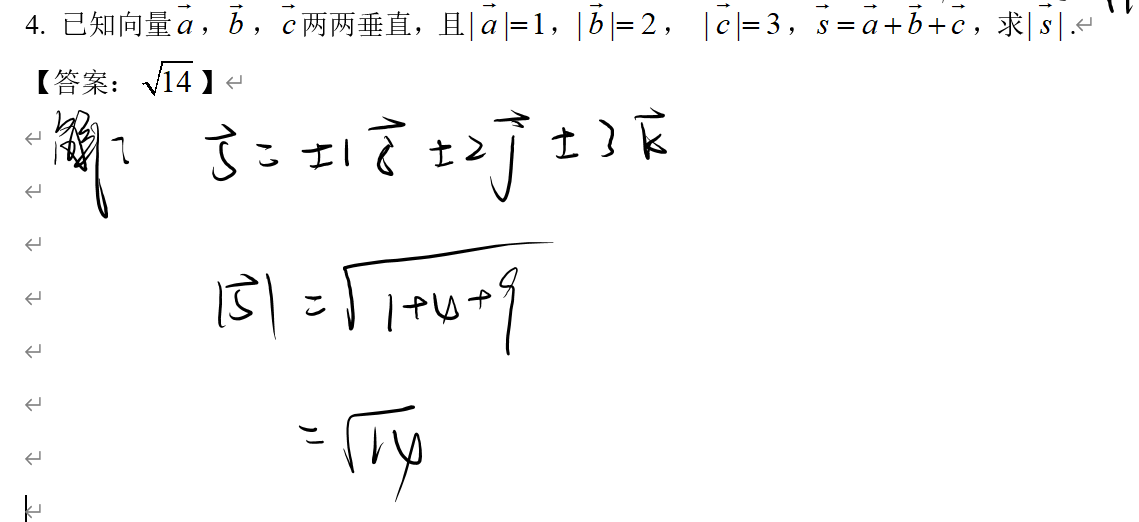 4. 已知向量 a⃗，b⃗，c⃗ 两两垂直，且|a⃗|=1，|b⃗|=2， |c⃗|=3，s⃗=a⃗+b⃗+c⃗，求|s⃗|.
【答案：√14】
解： s⃗ = ±1 i⃗ ±2 j⃗ ±3 k⃗
|s⃗| = √(1+4+9)
= √14